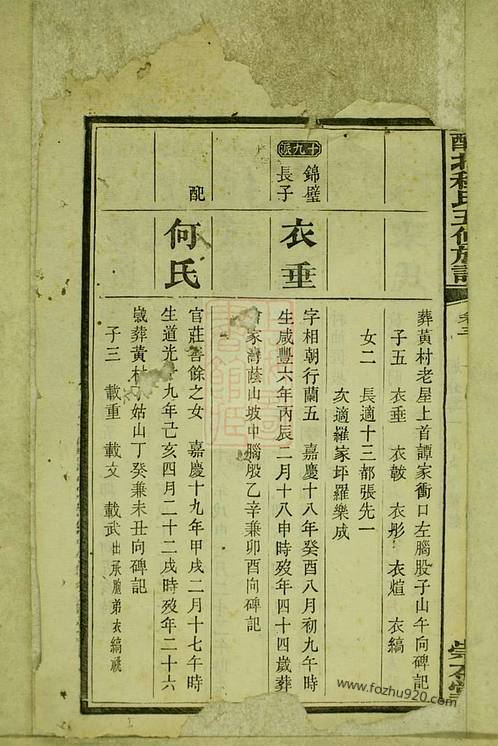 氏五修族譜
卷三
葬黃村老屋上首譚家衝口左腦股子山午向碑記
子五　衣垂　衣𧙻　衣彤　衣煊　衣縞
女二　長適十三都張先一
次適羅家坪羅樂成
十九派
錦璧長子
衣垂
字相朝行蘭五　嘉慶十八年癸酉八月初九午時
生咸豐六年丙辰二月十八申時歿年四十四歲葬
家灣蔭山坡中腦股乙辛兼卯酉向碑記
配
何氏
官莊善餘之女　嘉慶十九年甲戌二月十七午時
生道光十九年己亥四月二十二戌時歿年二十六
歲葬黃村姑山丁癸兼未丑向碑記
子三　載重　載文　載武出承胞弟衣縞祧
www.fozhu920.com